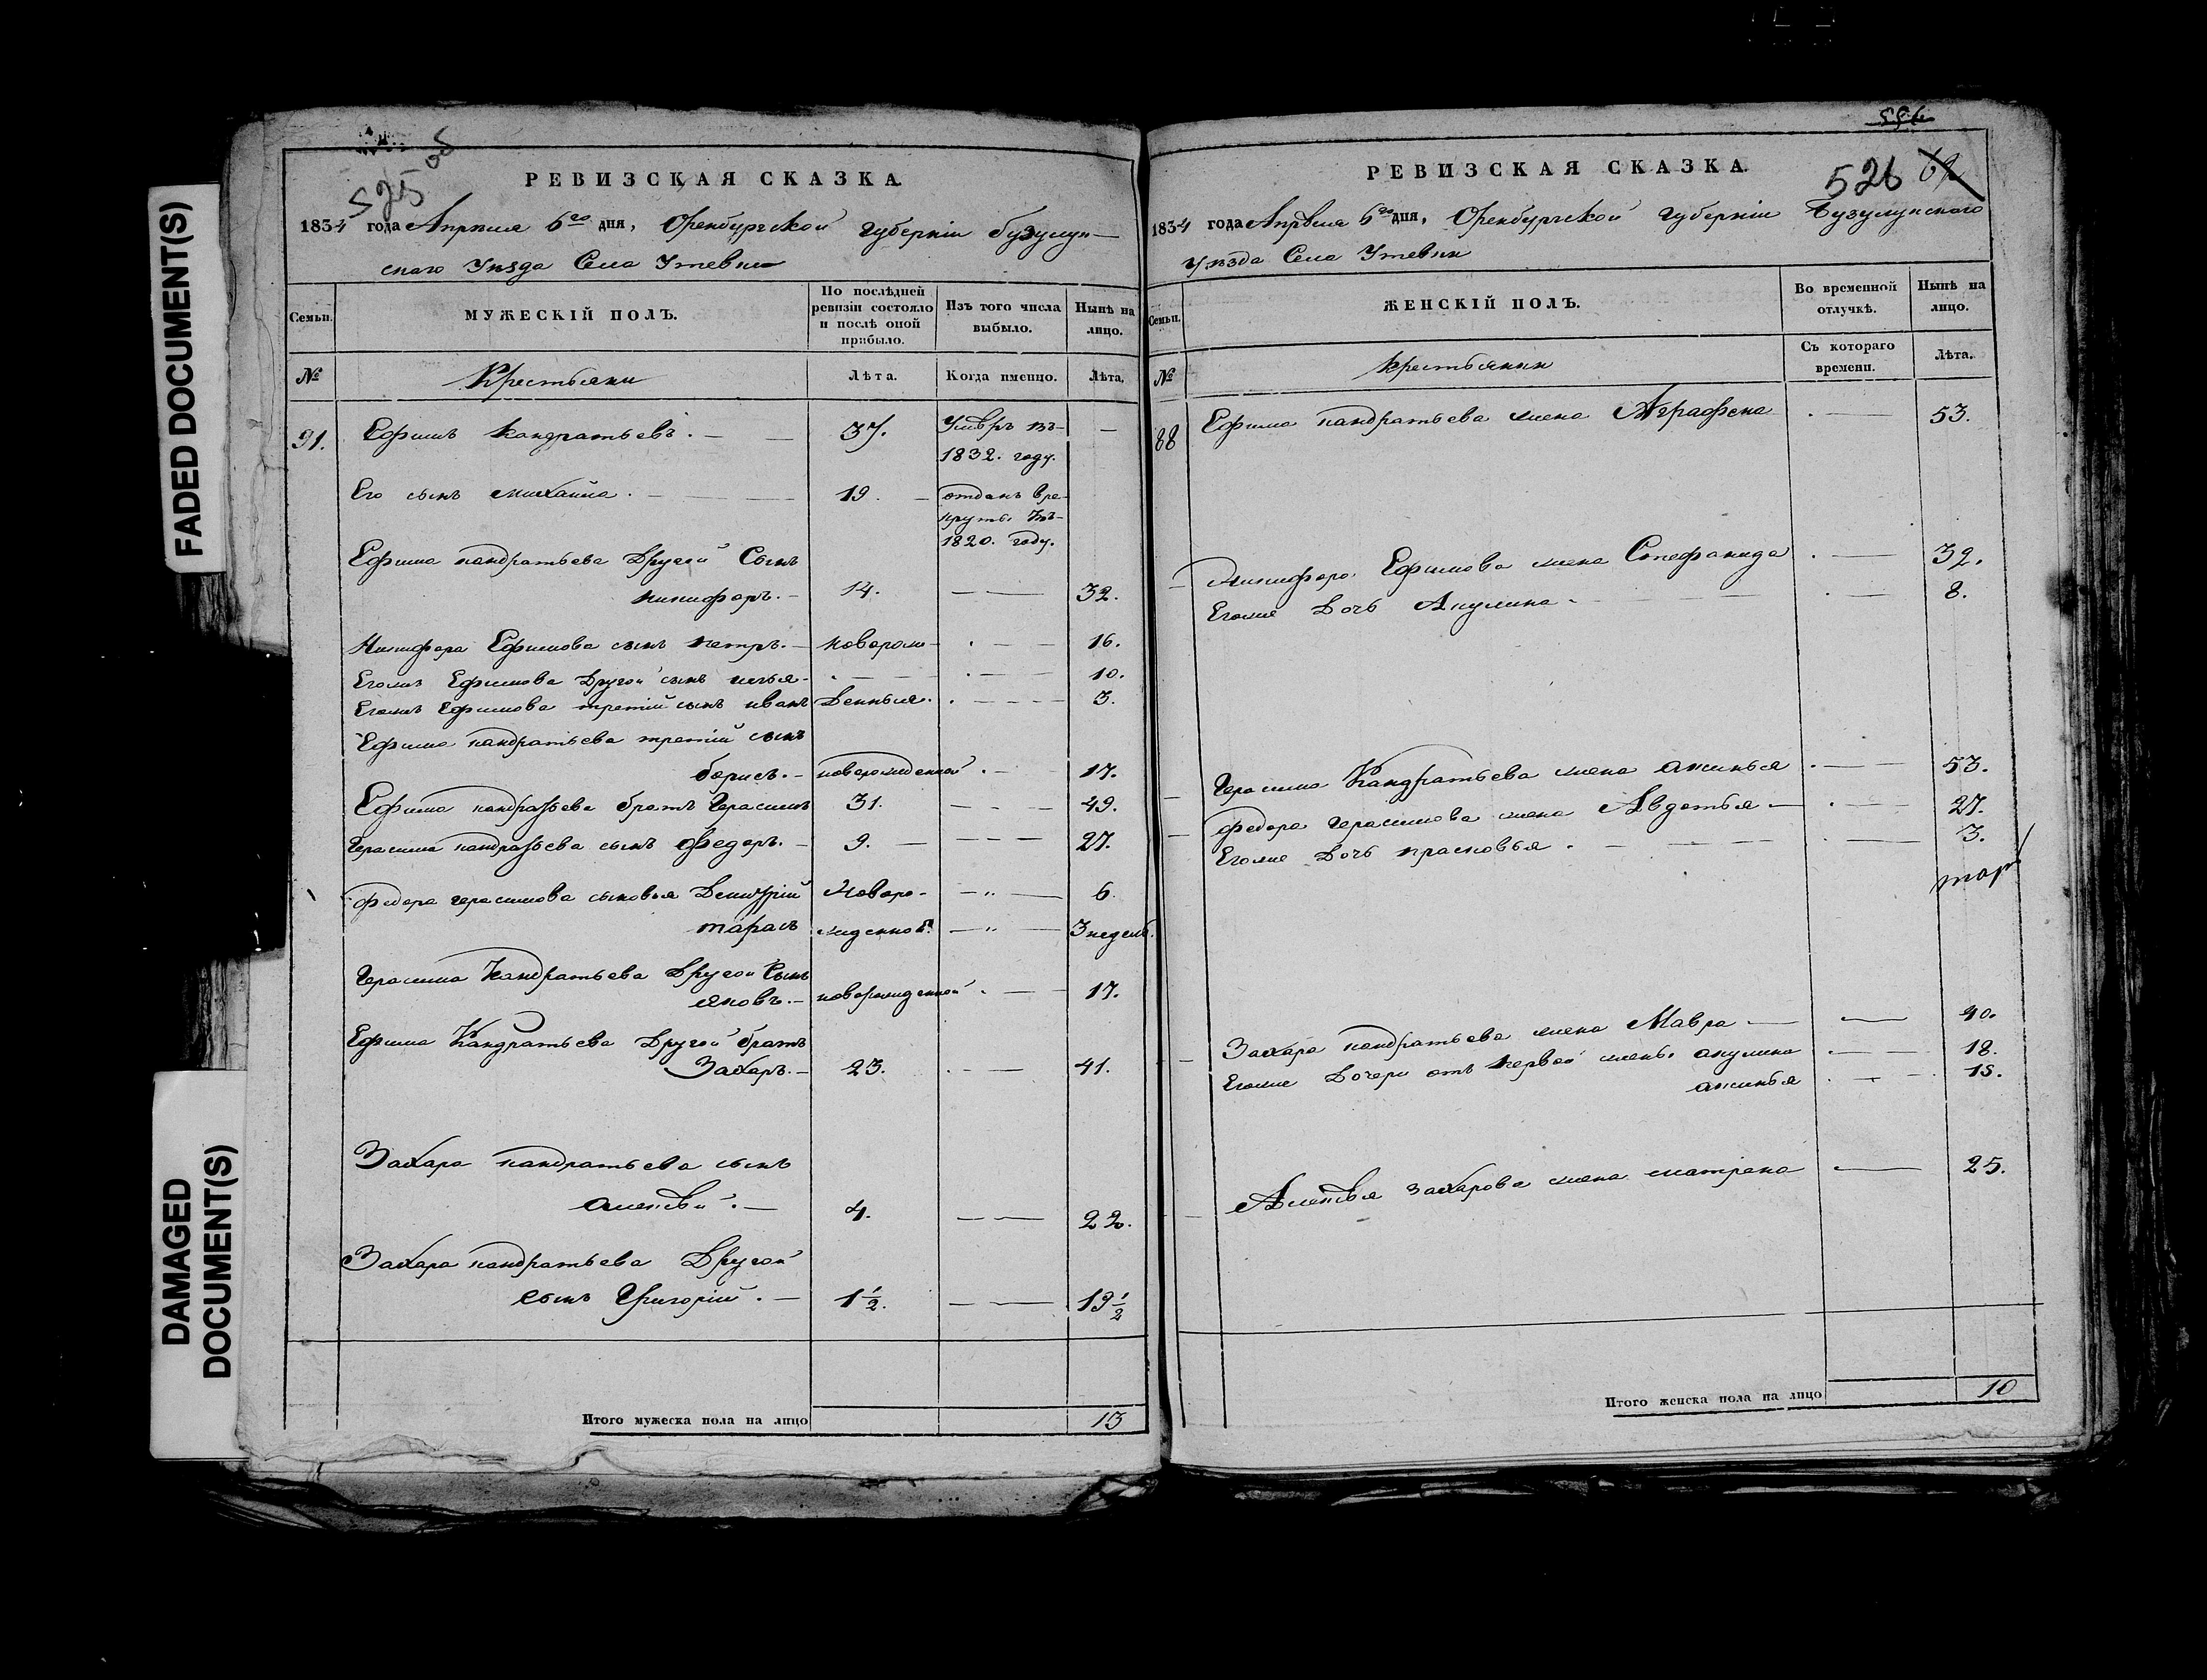 FADED DOCUMENT(S)
DAMAGED
DOCUMENT(S)
525 об
РЕВИЗСКАЯ СКАЗКА.
1834 года Апреля 6го дня, Оренбургской губернии бузулук-
скаго Уезда Села Утевки
Семьи.
МУЖЕСКІЙ ПОЛЪ.
По послѣдней
ревизіи состояло
и послѣ оной
прибыло.
Изъ того числа
выбыло.
Нынѣ на
лицо.
№
Крестьяни
Лѣта.
Когда именно.
Лѣта.
91. Ефимъ Кандратьевъ. 37. Умѣръ въ
1832. году.
Его сынъ михайла. 19. отданъ вре-
круты въ
1820. году.
Ефима кандратьева Другой Сынъ
никифоръ. 14. 32.
Никифора Ефимова сынъ петръ. новорож- 16.
Егожъ Ефимова Другой сынъ илья 10.
Егожъ Ефимова третiй сынъ иванъ Денныя. 3.
Ефима кандратьева третiй сынъ
борисъ. новорожденной. 17.
Ефима кандратьева братъ Герасимъ 31. 49.
Герасима кандратьева сынъ Федоръ. 9. 27.
Федора герасимова сыновья Демитрiй Новоро- 6.
тарасъ жденной. 3 недель.
Герасима Кандратьева Другой Сынъ
яковъ. новорожденной. 17.
Ефима Кандратьева Другой братъ
Захаръ. 23. 41.
Захара кандратьева сынъ
Алексѣй. 4. 22.
Захара кандратьева Другой
сынъ Григорiй. 1½. 19½
Итого мужеска пола на лицо 13
526
РЕВИЗСКАЯ СКАЗКА.
1834 года Апрѣля 6го дня, Оренбургской губернiи Бузулукскаго
Уѣзда Села Утевки
Семьи.
ЖЕНСКІЙ ПОЛЪ.
Во временной
отлучкѣ.
Нынѣ на
лицо.
№
крестьянки
Съ котораго
времени.
Лѣта.
88 Ефима кандратьева жена Аграфена 53.
Никифора Ефимова жена Стефанида 32.
Егоже Дочь Акулина 8.
Герасима Кандратьева жена аксинья 53.
Федора герасимова жена Авдотья 27.
Егоже Дочь прасковья. 3.
Захара кандратьева жена Мавра 40.
Егоже Дочери отъ первой жены акулина 18.
аксинья 15.
Алексѣя захарова жена матрена 25.
Итого женска пола на лицо 10